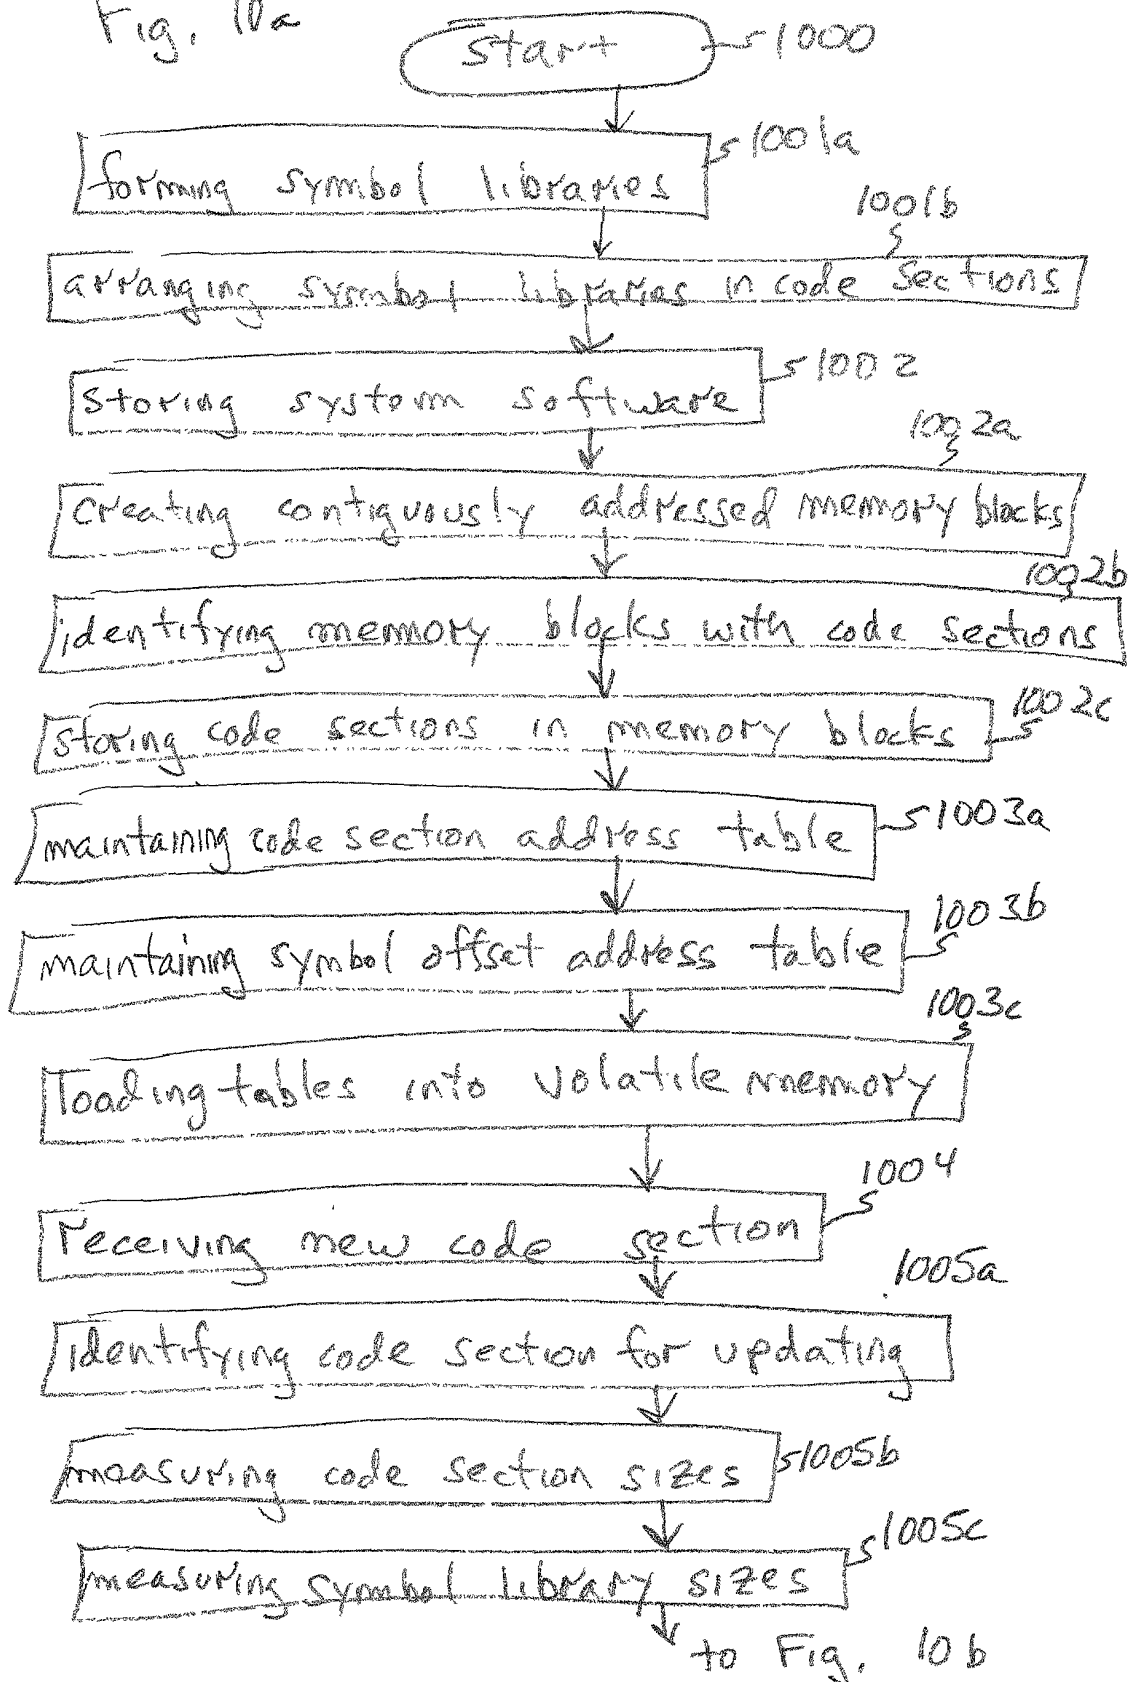 Fig. 10a
start 1000
forming symbol libraries 1001a
1001b
arranging symbol libraries in code sections
storing system software 1002
1002a
creating contiguously addressed memory blocks
1002b
identifying memory blocks with code sections
storing code sections in memory blocks 1002c
maintaining code section address table 1003a
maintaining symbol offset address table 1003b
1003c
loading tables into volatile memory
1004
receiving new code section
1005a
identifying code section for updating
measuring code section sizes 1005b
measuring symbol library sizes 1005c
to Fig. 10b